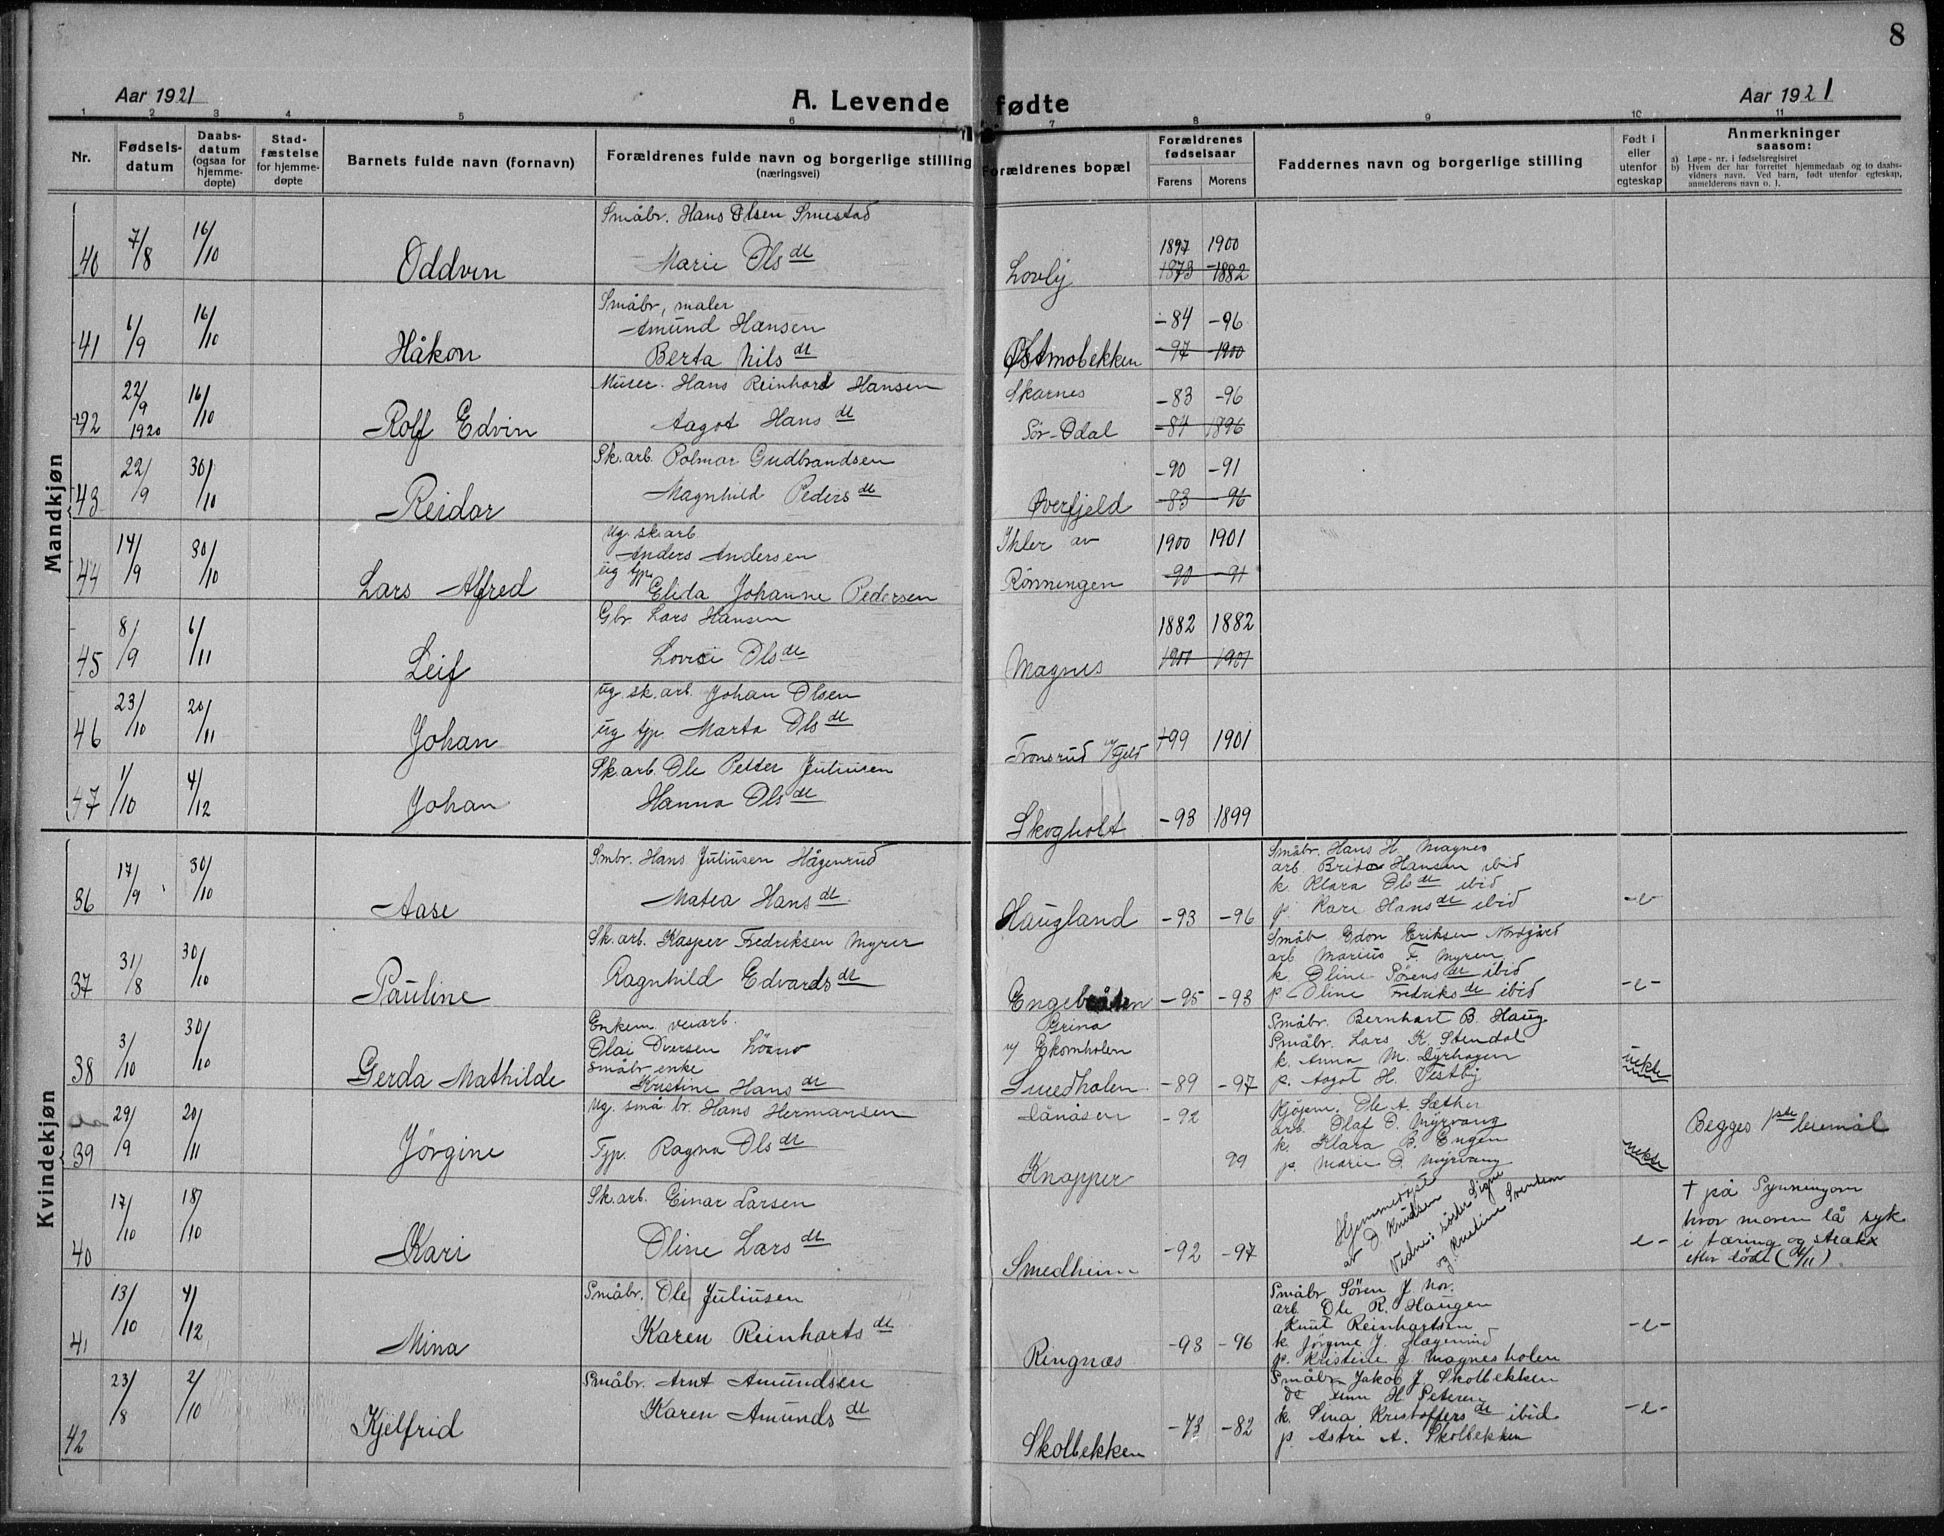 8
Aar 1921
A. Levende fødte
Aar 1921
1 2 3 4 5 6 7 8 9 10 11
Nr.
Fødsels-
datum
Daabs-
datum
(ogsaa for
hjemme-
døpte)
Stad-
fæstelse
for hjemme-
døpte
Barnets fulde navn (fornavn)
Forældrenes fulde navn og borgerlige stilling
(næringsvei)
Forældrenes bopæl
Forældrenes
fødselsaar
Farens Morens
Faddernes navn og borgerlige stilling
Født i
eller
utenfor
egteskap
Anmerkninger
saasom:
a) Løpe-nr. i fødselsregistret
b) Hvem der har forrettet hjemmedaab og to daabs-
vidners navn. Ved barn, født utenfor egteskap,
anmelderens navn o. l.
Mandkjøn
40 7/8 16/10 Oddvin
Småbr. Hans Olsen Smestad
Marie Olsdt
Lovly
1897 1900
1873 -1882
41 6/9 16/10 Håkon
Småbr, maler
Amund Hansen
Berta Nilsdt
Østmobekken
-84 -96
-97 -1900
42 22/9 1920 16/10 Rolf Edvin
Murer. Hans Reinhard Hansen
Aagot Hansdt
Skarnes
Sør-Odal
-83 -96
-84 1896
43 22/9 30/10 Reidar
Sk.arb. Polmar Gudbrandsen
Magnhild Pedersdt
Øverfjeld
-90 -91
-83 -96
44 14/9 30/10 Lars Alfred
Ug. sk.arb
Anders Andersen
ug tjp
Elida Johanne Pedersen
Ihler av
Rønningen
1900 1901
-90 -91
45 8/9 6/11 Leif
Gbr Lars Hansen
Lovise Olsdt
Magnes
1882 1882
1901
46 23/10 20/11 Johan
ug. sk.arb. Johan Olsen
ug tjp. Marta Olsdt
Fronsrud
-99 1901
47 1/10 4/12 Johan
Sk.arb. Ole Petter Juliusen
Hanna Olsdt
Skogholt
-93 1899
Kvindekjøn
36 17/9 30/10 Aase
Smbr. Hans Juliusen Hågenrud
Matea Hansdt
Haugland -93 -96
Småbr. Hans H. Magnes
arb Brite Hansen ibid
k. Klara Olsdt ibid
p. Kare Hansdt ibid
-e-
37 31/8 30/10 Pauline
Sk.arb. Kasper Fredriksen Myrer
Ragnhild Edvardsdt
Engebråten -95 -93
Småb. Edon Eriksen Nordgård
arb Marius F. Myren
k. Oline Sørensdt ibid
p Oline Fredriksdt ibid
-e-
38 3/10 30/10 Gerda Mathilde
Enkem. veiarb.
Olai Iversen
Småbr enke
Kristine Hansdt
Grina
v/ Ekornholen
Smedholen -89 -97
Småbr. Bernhart B. Haug
Småbr. Lars K. Stendal
k. Anna M. Dyrhagen
p. Aagot H. Vestby
uekte
39 29/9 20/11 Jørgine
Ug. små br. Hans Hermansen
Tjp. Ragna Olsdt
Lånåsen -92
Knapper 99
Kjøpm. Ole A. Sæther
arb. Olaf O. Myrvang
k. Klara B. Engen
p. Marie O. Myrvang
uekte
Begges 1ste leiemål
40 17/10 18/10 Kari
Sk.arb. Einar Larsen
Oline Larsdt
Smedheim -92 -97
Hjemmedøpt
av O Knudsen
Vidnes søster Signe
og Kristine Svendsen
e-
† på Synningom
hvor moren lå syk
i tæring og straks
efter døde (
41 13/10 4/12 Mina
Småbr. Ole Juliusen
Karen Reinhartsdt
Ringnæs -93 -96
Småbr Søren J Mor.
arb Ole R. Haugen
Knut Reinhartsen
k. Jørgine J. Hagenrud
p. Kristine J Magnesholen
-e-
42 23/8 2/10 Kjelfrid
Småbr. Arnt Amundsen
Karen Amundsdt
Skolbekken -73 -82
Småbr Jakob J. Skolbekken
H Peteren
k. Lina Kristoffersdt ibid
p. Astri A. Skolbekken
-e-